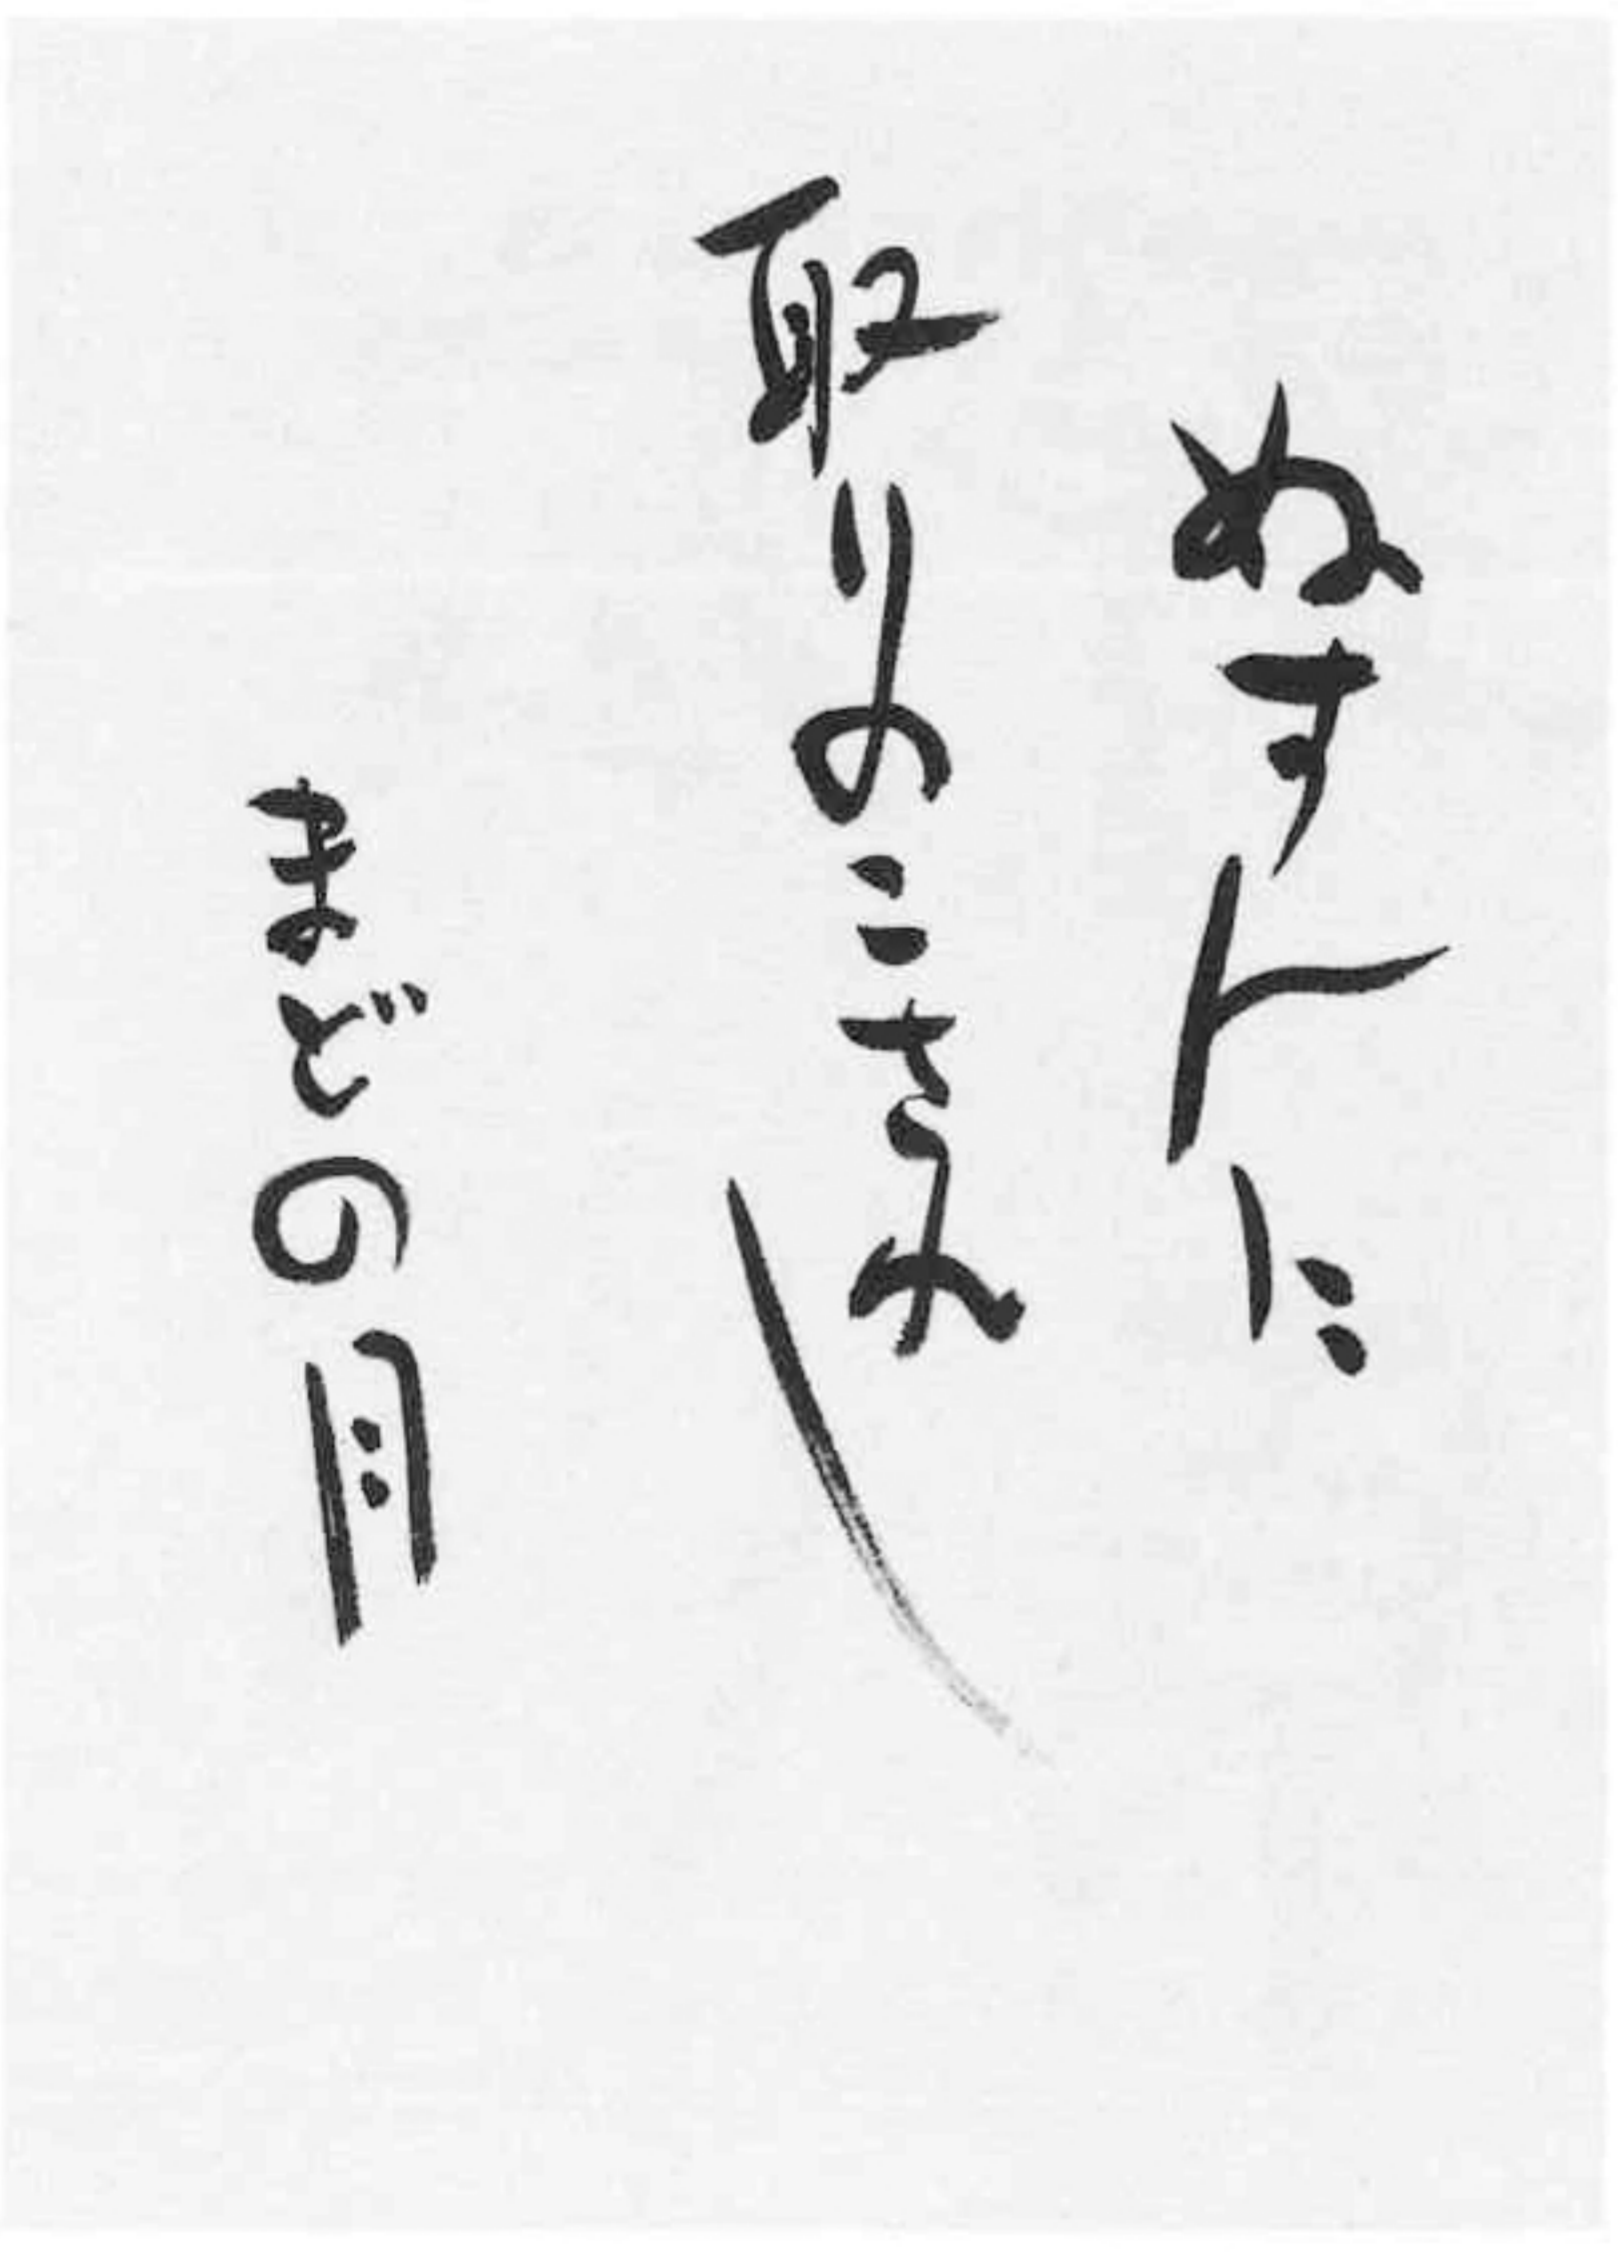 ぬす人に
取りのこされし
まどの月